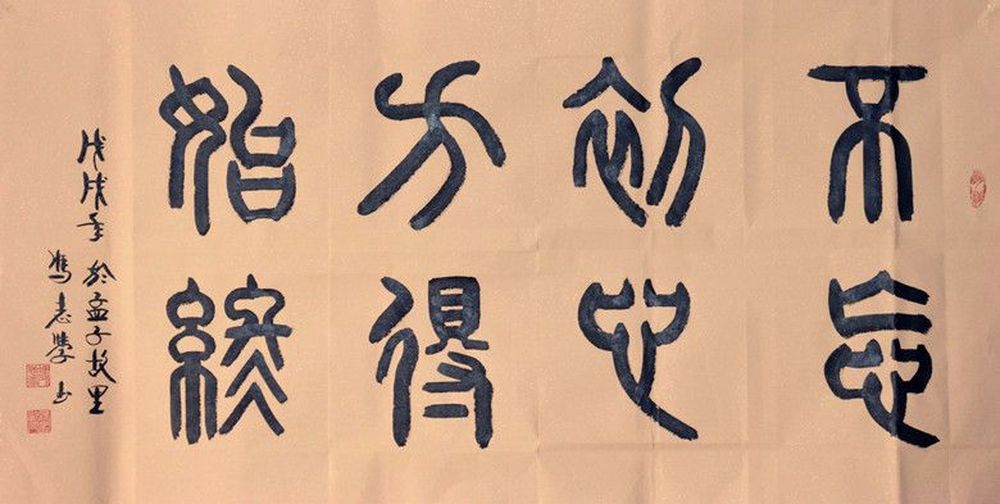 不忘
初心
方得
始終
戊戌年於孟子故里
馮志學书